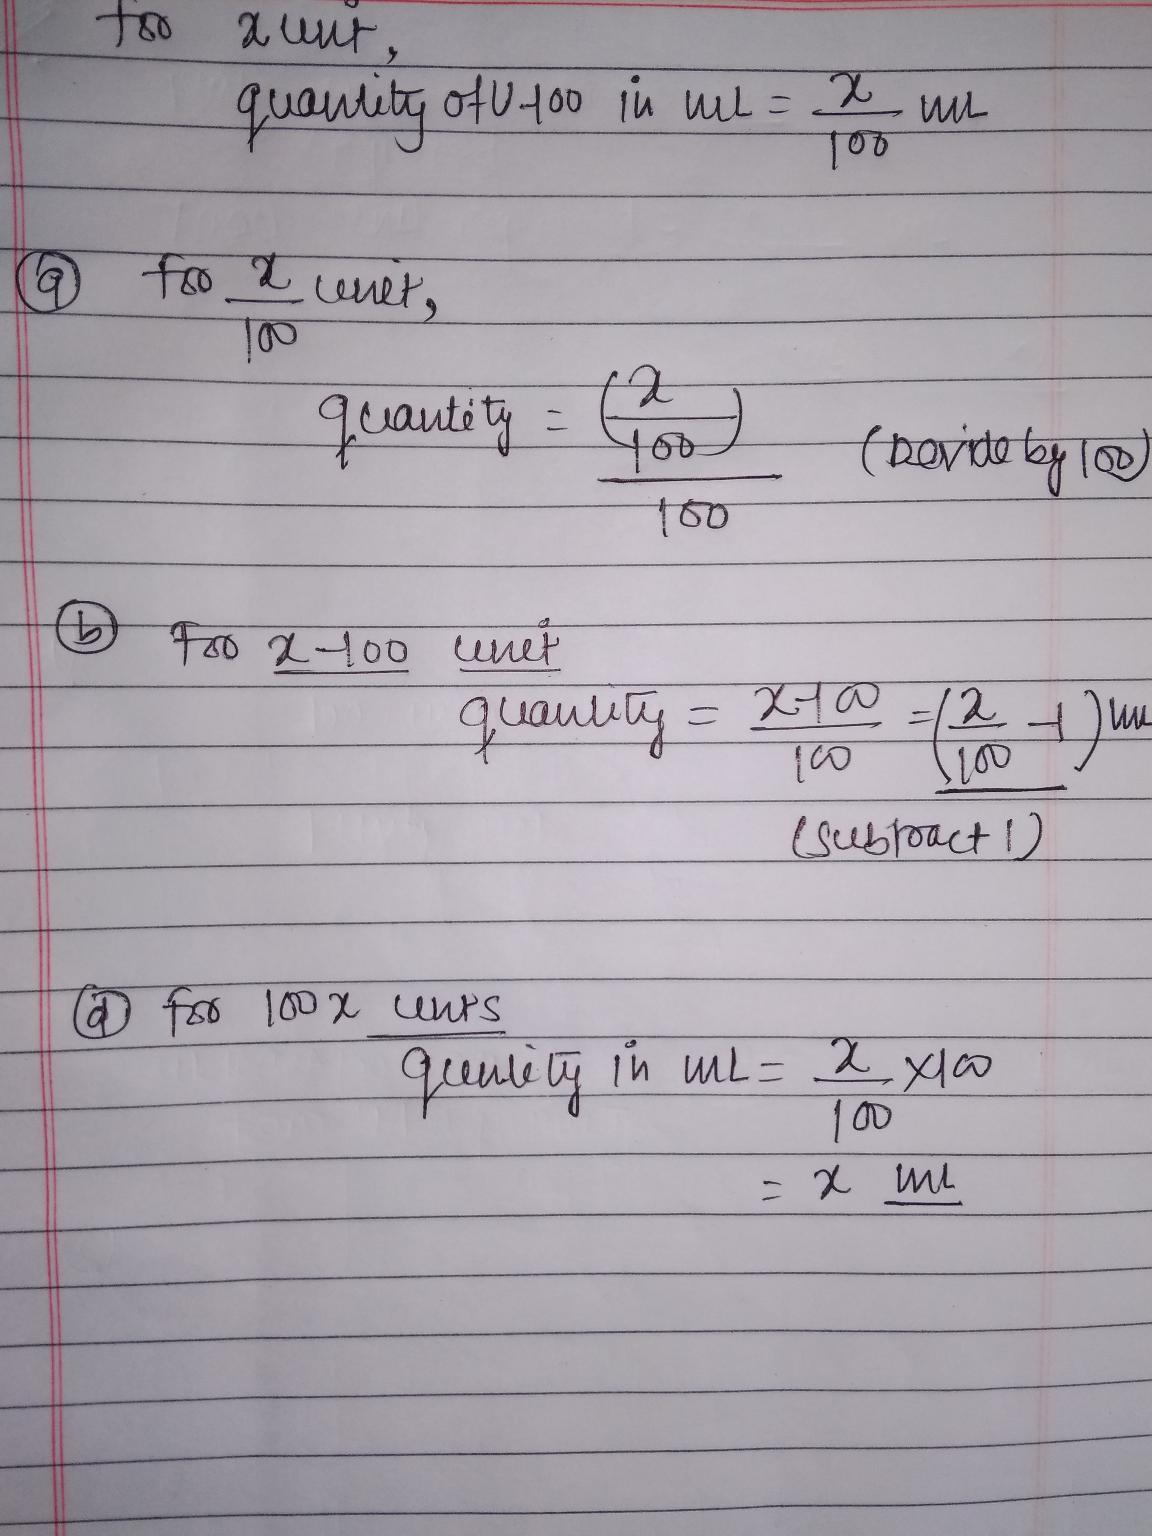 For x unit,
quantity of U-100 in mL = x/100 mL
(a) For x/100 unit,
quantity = (x/100)/100 (Devide by 100)
(b) For x-100 unit
quantity = x-100/100 = (x/100 - 1) mL
(subtract 1)
(d) For 100x units
quantity in mL = x/100 ×100
= x mL